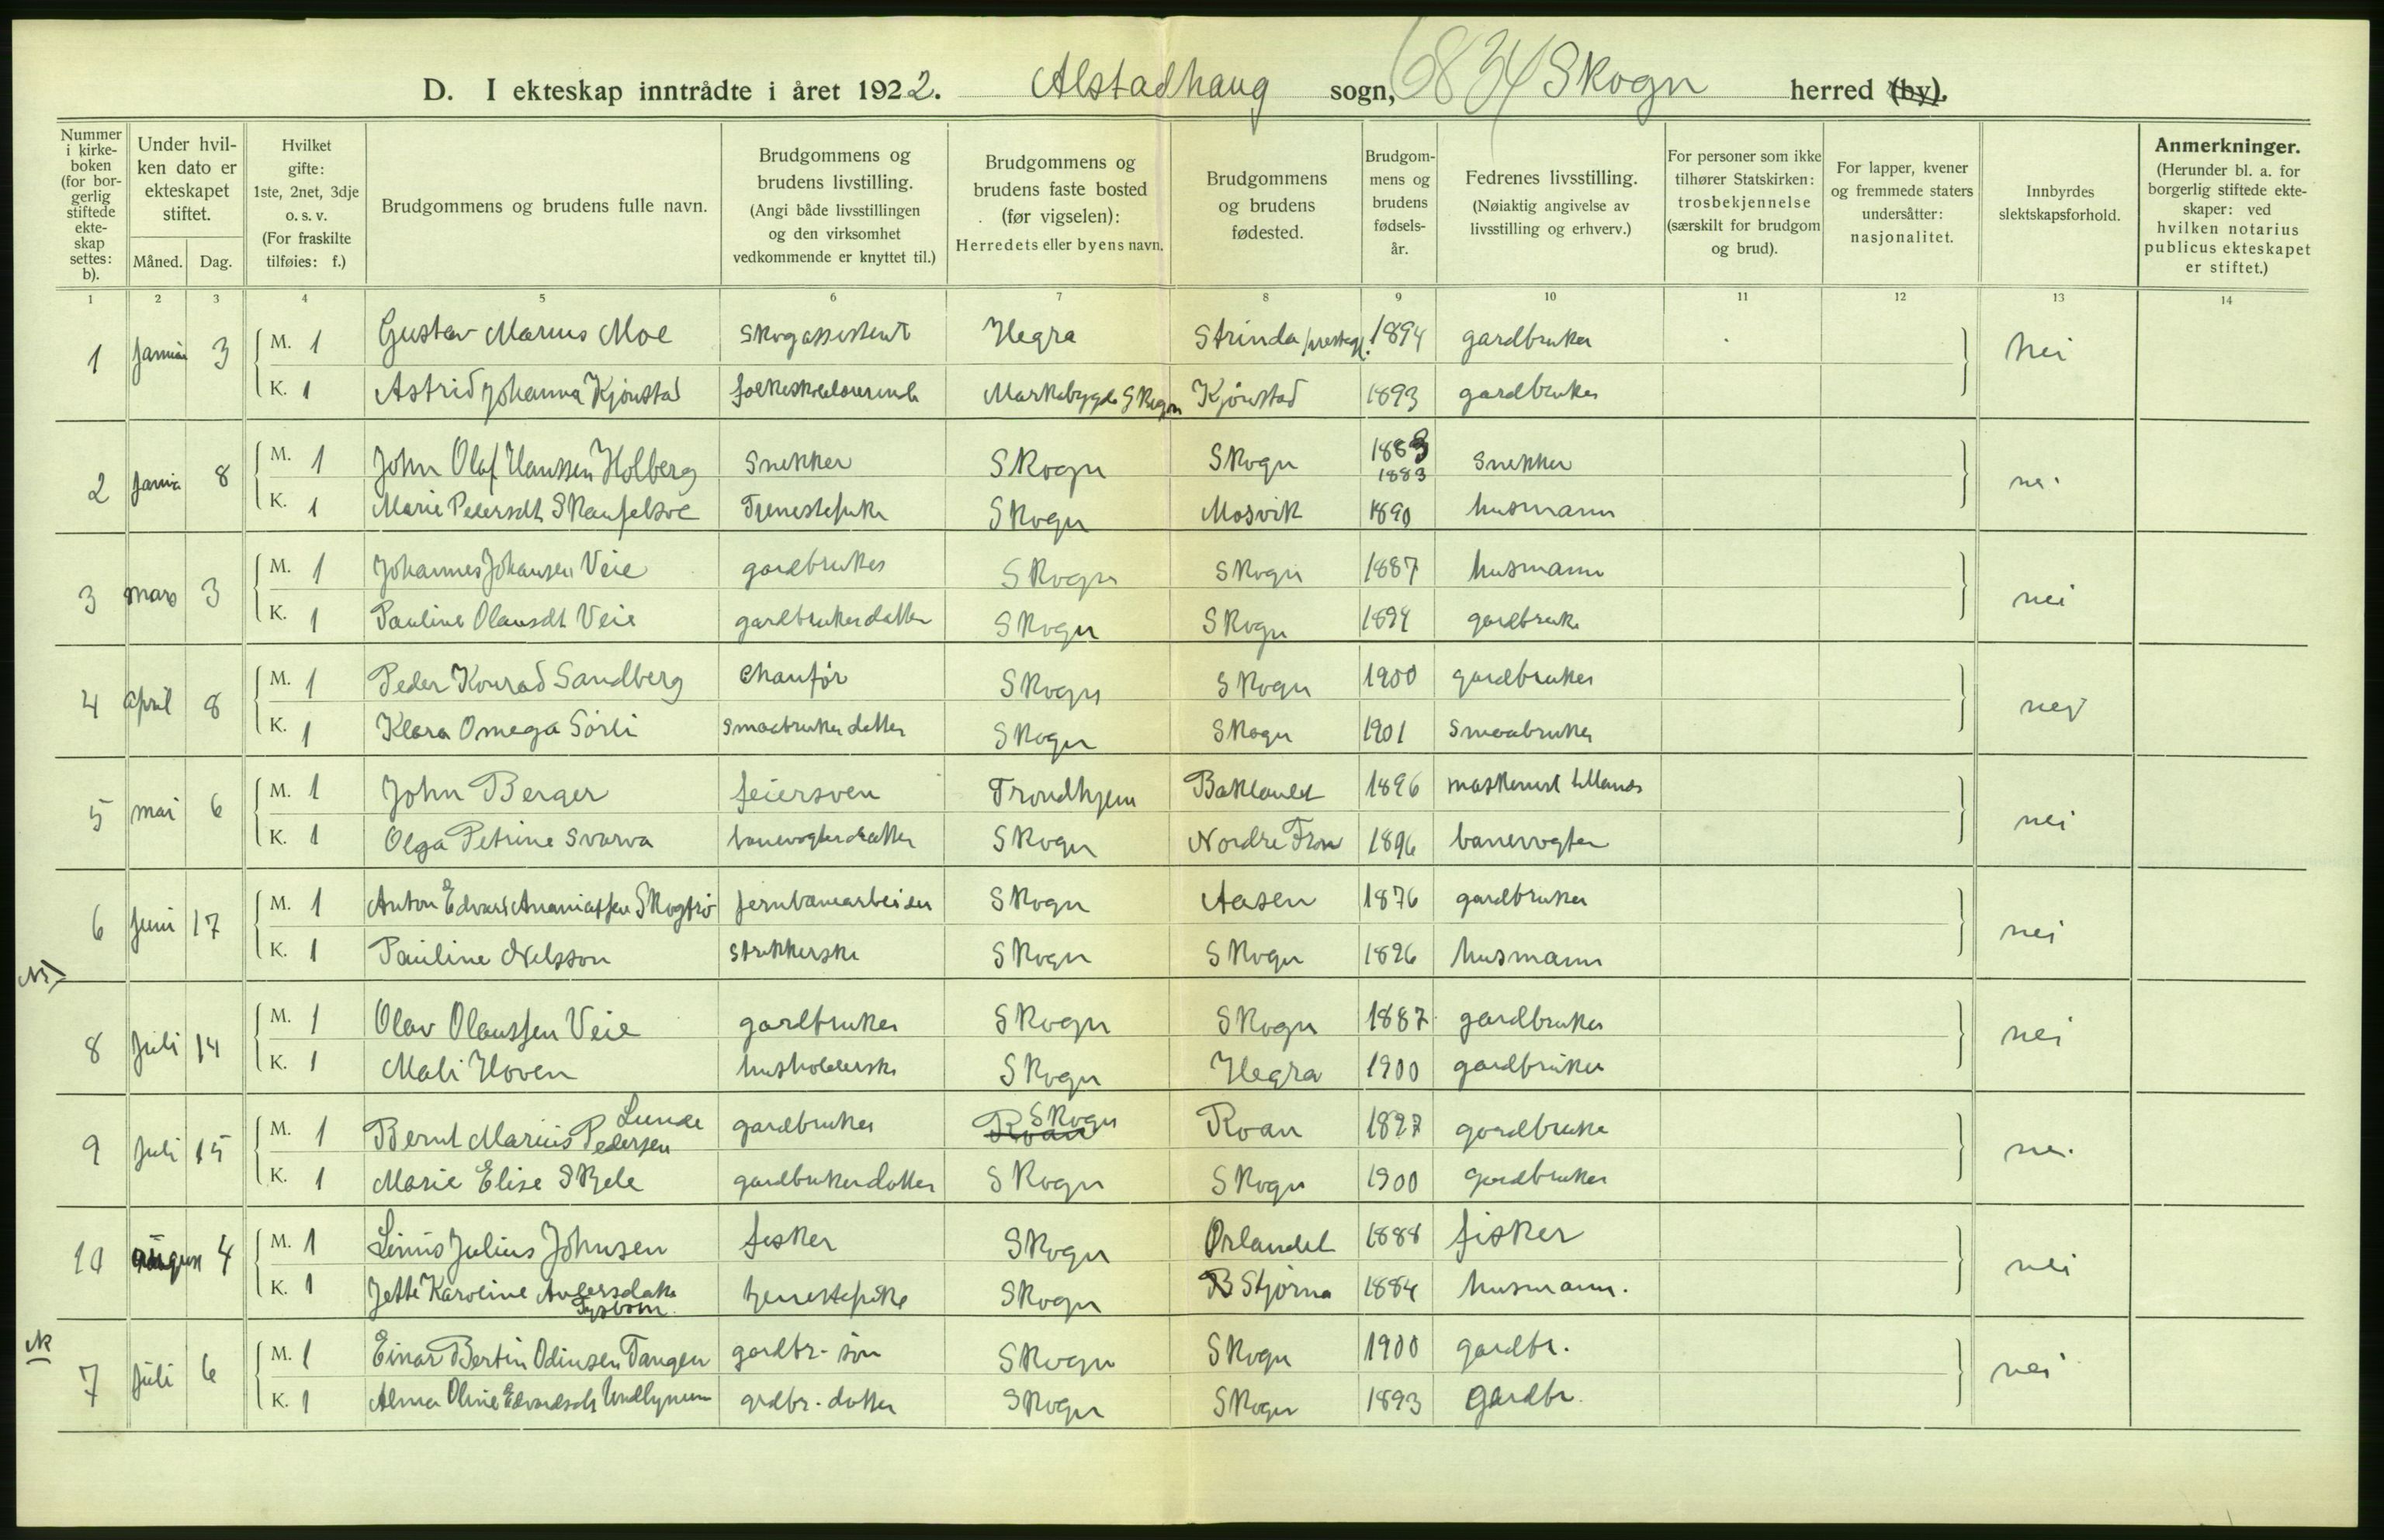 D. I ekteskap inntrådte i året 1922. Alstadhaug sogn, 6834 Skogn herred (by).
Nummer i kirke-boken (for bor-gerlig stiftede ekte-skap settes: b).
Under hvil-ken dato er ekteskapet stiftet.
Måned. Dag.
Hvilket gifte: 1ste, 2net, 3dje o. s. v. (For fraskilte tilføies: f.)
Brudgommens og brudens fulle navn.
Brudgommens og brudens livstilling. (Angi både livsstillingen og den virksomhet vedkommende er knyttet til.)
Brudgommens og brudens faste bosted (før vigselen): Herredets eller byens navn.
Brudgommens og brudens fødested.
Brudgom-mens og brudens fødsels-år.
Fedrenes livsstilling. (Nøiaktig angivelse av livsstilling og erhverv.)
For personer som ikke tilhører Statskirken: trosbekjennelse (særskilt for brudgom og brud).
For lapper, kvener og fremmede staters undersåtter: nasjonalitet.
Innbyrdes slektskapsforhold.
Anmerkninger. (Herunder bl. a. for borgerlig stiftede ekte-skaper: ved hvilken notarius publicus ekteskapet er stiftet.)
1 2 3 4 5 6 7 8 9 10 11 12 13 14
1 Januar 3 M. 1 Gustav Marius Moe Skogassistent Hegra Strinda prestegj. 1894 gardbruker nei
K. 1 Astrid Johanna Kjönstad folkeskolelærerinde Markabygda Skogn Kjönstad 1893 gardbruker
2 Janua 8 M. 1 John Olaf Hanssen Holberg Snekker Skogn Skogn 1883 1883 Snekker nei
K. 1 Marie Pedersdt Tjenestepike Skogn Mosvik 1890 husmann
3 mars 3 M. 1 Johannes Johansen Veie gardbruker Skogn Skogn 1887 husmann nei
K. 1 Pauline Olausdt Veie gardbrukerdatter Skogn Skogn 1894 gardbruker
4 april 8 M. 1 Peder Konrad Sandberg Chauför Skogn Skogn 1900 gardbruker nei
K. 1 Klara Omega Sörli Smaabrukerdatter Skogn Skogn 1901 Smaabruker
5 mai 6 M. 1 John Berger feiersven Trondhjem Baklandet 1896 nei
K. 1 Olga Petrine Svarva banevogterdatter Skogn Nordre Fron 1896 banevogter
6 Juni 17 M. 1 Anton Edvard Ananiassen jernbanearbeider Skogn Aasen 1876 gardbruker nei
K. 1 Pauline Nelsson Strikkerske Skogn Skogn 1896 husmann
8 Juli 14 M. 1 Olav Olaussen Veie gardbruker Skogn Skogn 1887 gardbruker nei
K. 1 Mali Hoven husholderske Skogn Hegra 1900 gardbruker
9 Juli 15 M. 1 Bernt Marius Pedersen Lunde gardbruker Roan Skogn Roan 1897 gardbruker nei
K. 1 Marie Elise Skjele gardbrukerdatter Skogn Skogn 1900 gardbruker
10 august 4 M. 1 Linus Julius Johnsen fisker Skogn Ørlandet 1888 fisker nei
K. 1 Jette Karoline tjenestepike Skogn Stjørna 1884 husmann.
7 Juli 6 M. 1 Einar Bertin Odinsen Tangen gardbr- sön Skogn Skogn 1900 gardbr. nei
K. 1 Alma Oline Edvardsdt grdbr.-datter Skogn Skogn 1893 Gardbr.